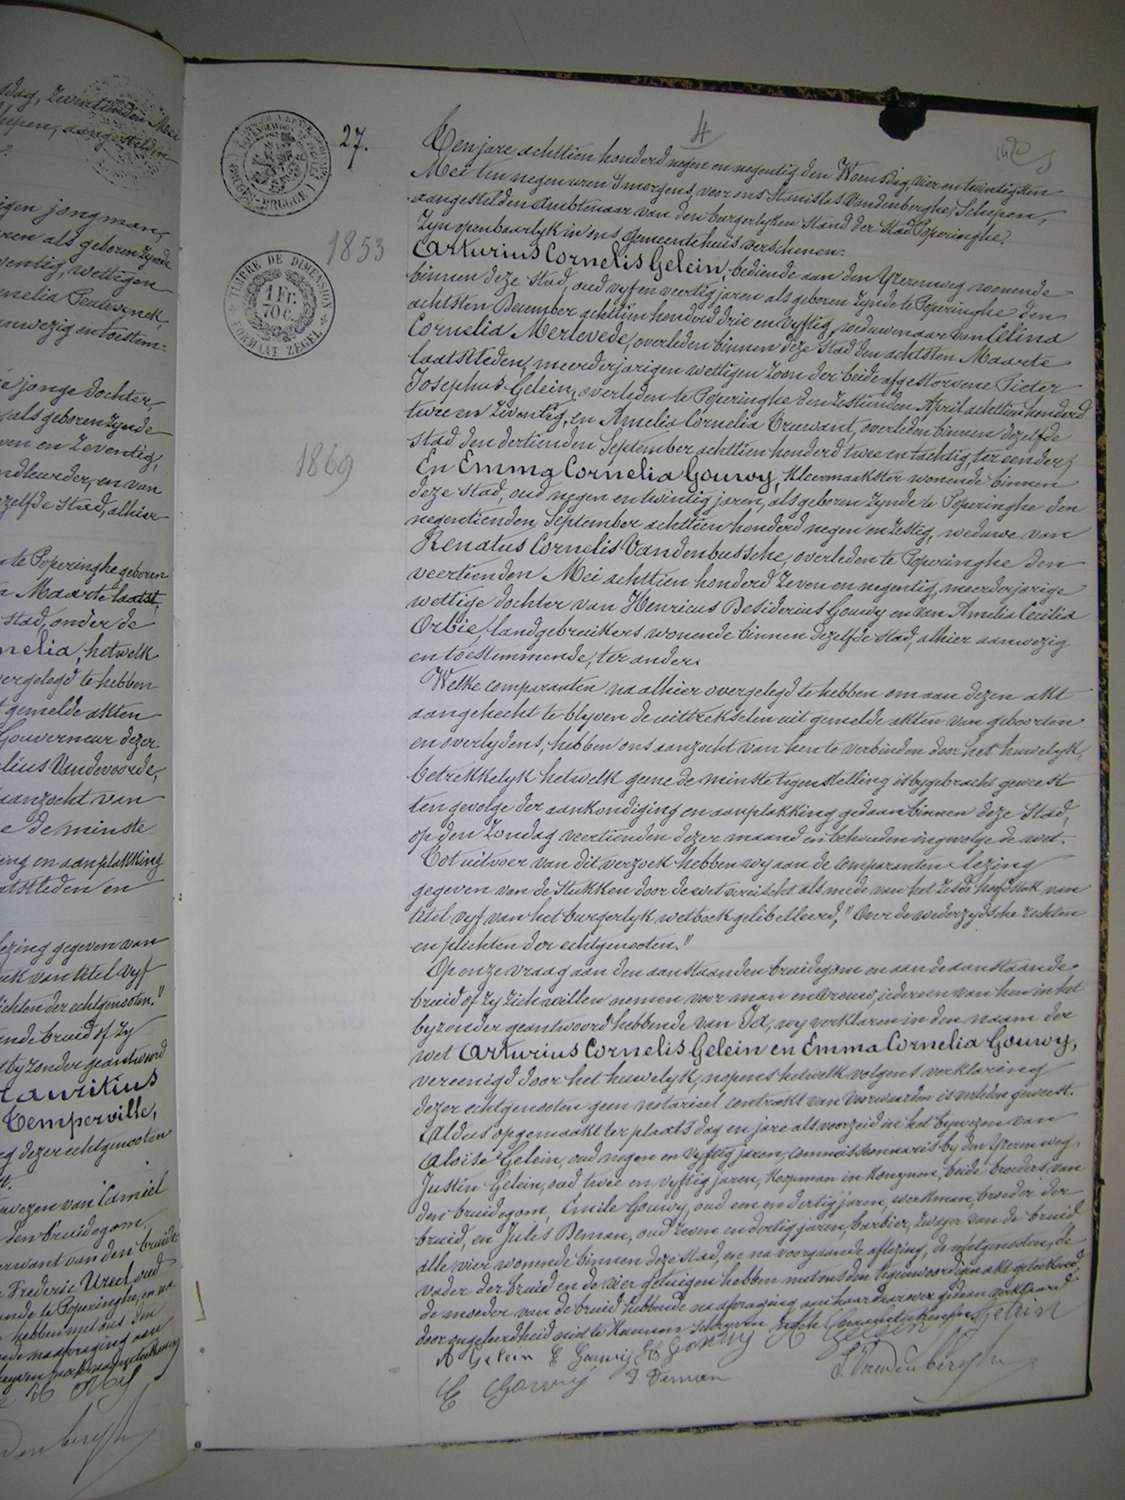 27.
4
1853
TIMBRE DE DIMENSION
1 Fr.
70 c.
FORMAAT ZEGEL
1869
Ten jare achttien honderd negen en negentig den Woensdag, vier en twintigsten
Mei ten negen uren 's morgens, voor ons Stanislas Vandenberghe, Schepen,
aangestelden Ambtenaar van den burgerlyken Stand der Stad Poperinghe,
zyn openbaarlyk in ons gemeentehuis verschenen:
Arturius Cornelis Gelein, bediende aan den Yzerenweg wonende
binnen deze stad, oud vyf en veertig jaren als geboren zynde te Poperinghe den
achtsten December achttien honderd drie en vyftig, weduwenaar van Celina
Cornelia Merlevede, overleden binnen deze stad den achtsten Maarte
laatstleden, meerderjarigen wettigen zoon der beide afgestorvene Pieter
Josephus Gelein, overleden te Poperinghe den zestienden April achttien honderd
twee en zeventig, en Amelia Cornelia Cruwant, overleden binnen dezelfde
stad den dertienden September achttien honderd twee en tachtig, ter eender;
En Emma Cornelia Gouwy, Kleermaakster wonende binnen
deze stad, oud negen en twintig jaren, als geboren zynde te Poperinghe den
negentienden September achttien honderd negen en zestig, weduwe van
Renatus Cornelis Vandenbussche, overleden te Poperinghe den
veertienden Mei achttien honderd zeven en negentig, meerderjarige
wettige dochter van Henricus Desiderius Gouwy en van Amelia Cecilia
Orbie, landgebruikers wonende binnen dezelfde stad, alhier aanwezig
en toestemmende, ter ander.
Welke comparanten na alhier overgelegd te hebben om aan dezen akt
aangehecht te blyven de uittrekselen uit gemelde akten van geboorten
en overlydens, hebben ons aanzocht van hen te verbinden door het huwelyk,
betrekkelyk hetwelk geene de minste tegenstelling is bygebracht geweest
ten gevolge der aankondiging en aanplakking gedaan binnen deze Stad,
op den Zondag veertienden dezer maand en behouden ingevolge de wet.
Tot uitvoer van dit verzoek hebben wy aan de comparanten lezing
gegeven van de stukken door de wet vereischt als mede van het zesde hoofdstuk van
titel vyf van het burgerlyk wetboek gelibelleerd, "Over de wederzydsche rechten
en plichten der echtgenooten."
Op onze vraag aan den aanstaanden bruidegom en aan de aanstaande
bruid of zy zich willen nemen voor man en vrouw, iedereen van hen in het
byzonder geantwoord hebbende van Ja, wy verklaren in den naam der
wet Arturius Cornelis Gelein en Emma Cornelia Gouwy,
vereenigd door het huwelyk, nopens hetwelk volgens verklaring
dezer echtgenooten geen notarieel contrakt van voorwaarden is verleden geweest.
Aldus opgemaakt ter plaats dag en jare als voorzeid in het bywezen van
Aloïse Gelein, oud negen en vyftig jaren, commissionnaris by den Yzerenweg,
Justin Gelein, oud twee en vyftig jaren, Koopman in Konynen, beide broeders van
den bruidegom, Emile Gouwy, oud een en dertig jaren, werkman, broeder der
bruid, en Jules Deman, oud zeven en dertig jaren, barbier, zwager van de bruid
alle vier wonende binnen deze stad, en na voorgaande aflezing, de echtgenooten, de
vader der bruid en de vier getuigen hebben met ons den tegenwoordigen akt geteekend,
de moeder van de bruid hebbende na afvraging aan haar daarover gedaan verklaard
door ongeleerdheid niet te kunnen schryven noch handteekenen
A Gelein E Gouwy H Gouwy A Gelein J Gelein
E Gouwy J Deman S. Vandenberghe
igen jongman,
ren als geboren zynde
ventig, wettigen
anwezig en toestem-
e jonge dochter,
als geboren zynde
ven en zeventig,
zelfde stad, alhier
te Poperinghe geboren
n Maarte laatst
stad, onder de
nelia, hetwelk
vergelegd te hebben
gemelde akten
Gouverneur dezer
lius Vandevoorde,
aanzocht van
e de minste
ing en aanplakking
atstleden en
lezing gegeven van
uk van titel vyf
ichten der echtgenooten."
ende bruid of zy
t byzonder geantwoord
Mauritius
Temperville,
g dezer echtgenooten
wezen van Camiel
den bruidegom,
rwant van den bruide
Frederic
nde te Poperinghe, en na
hebben met ons den
ende na afvraging aan